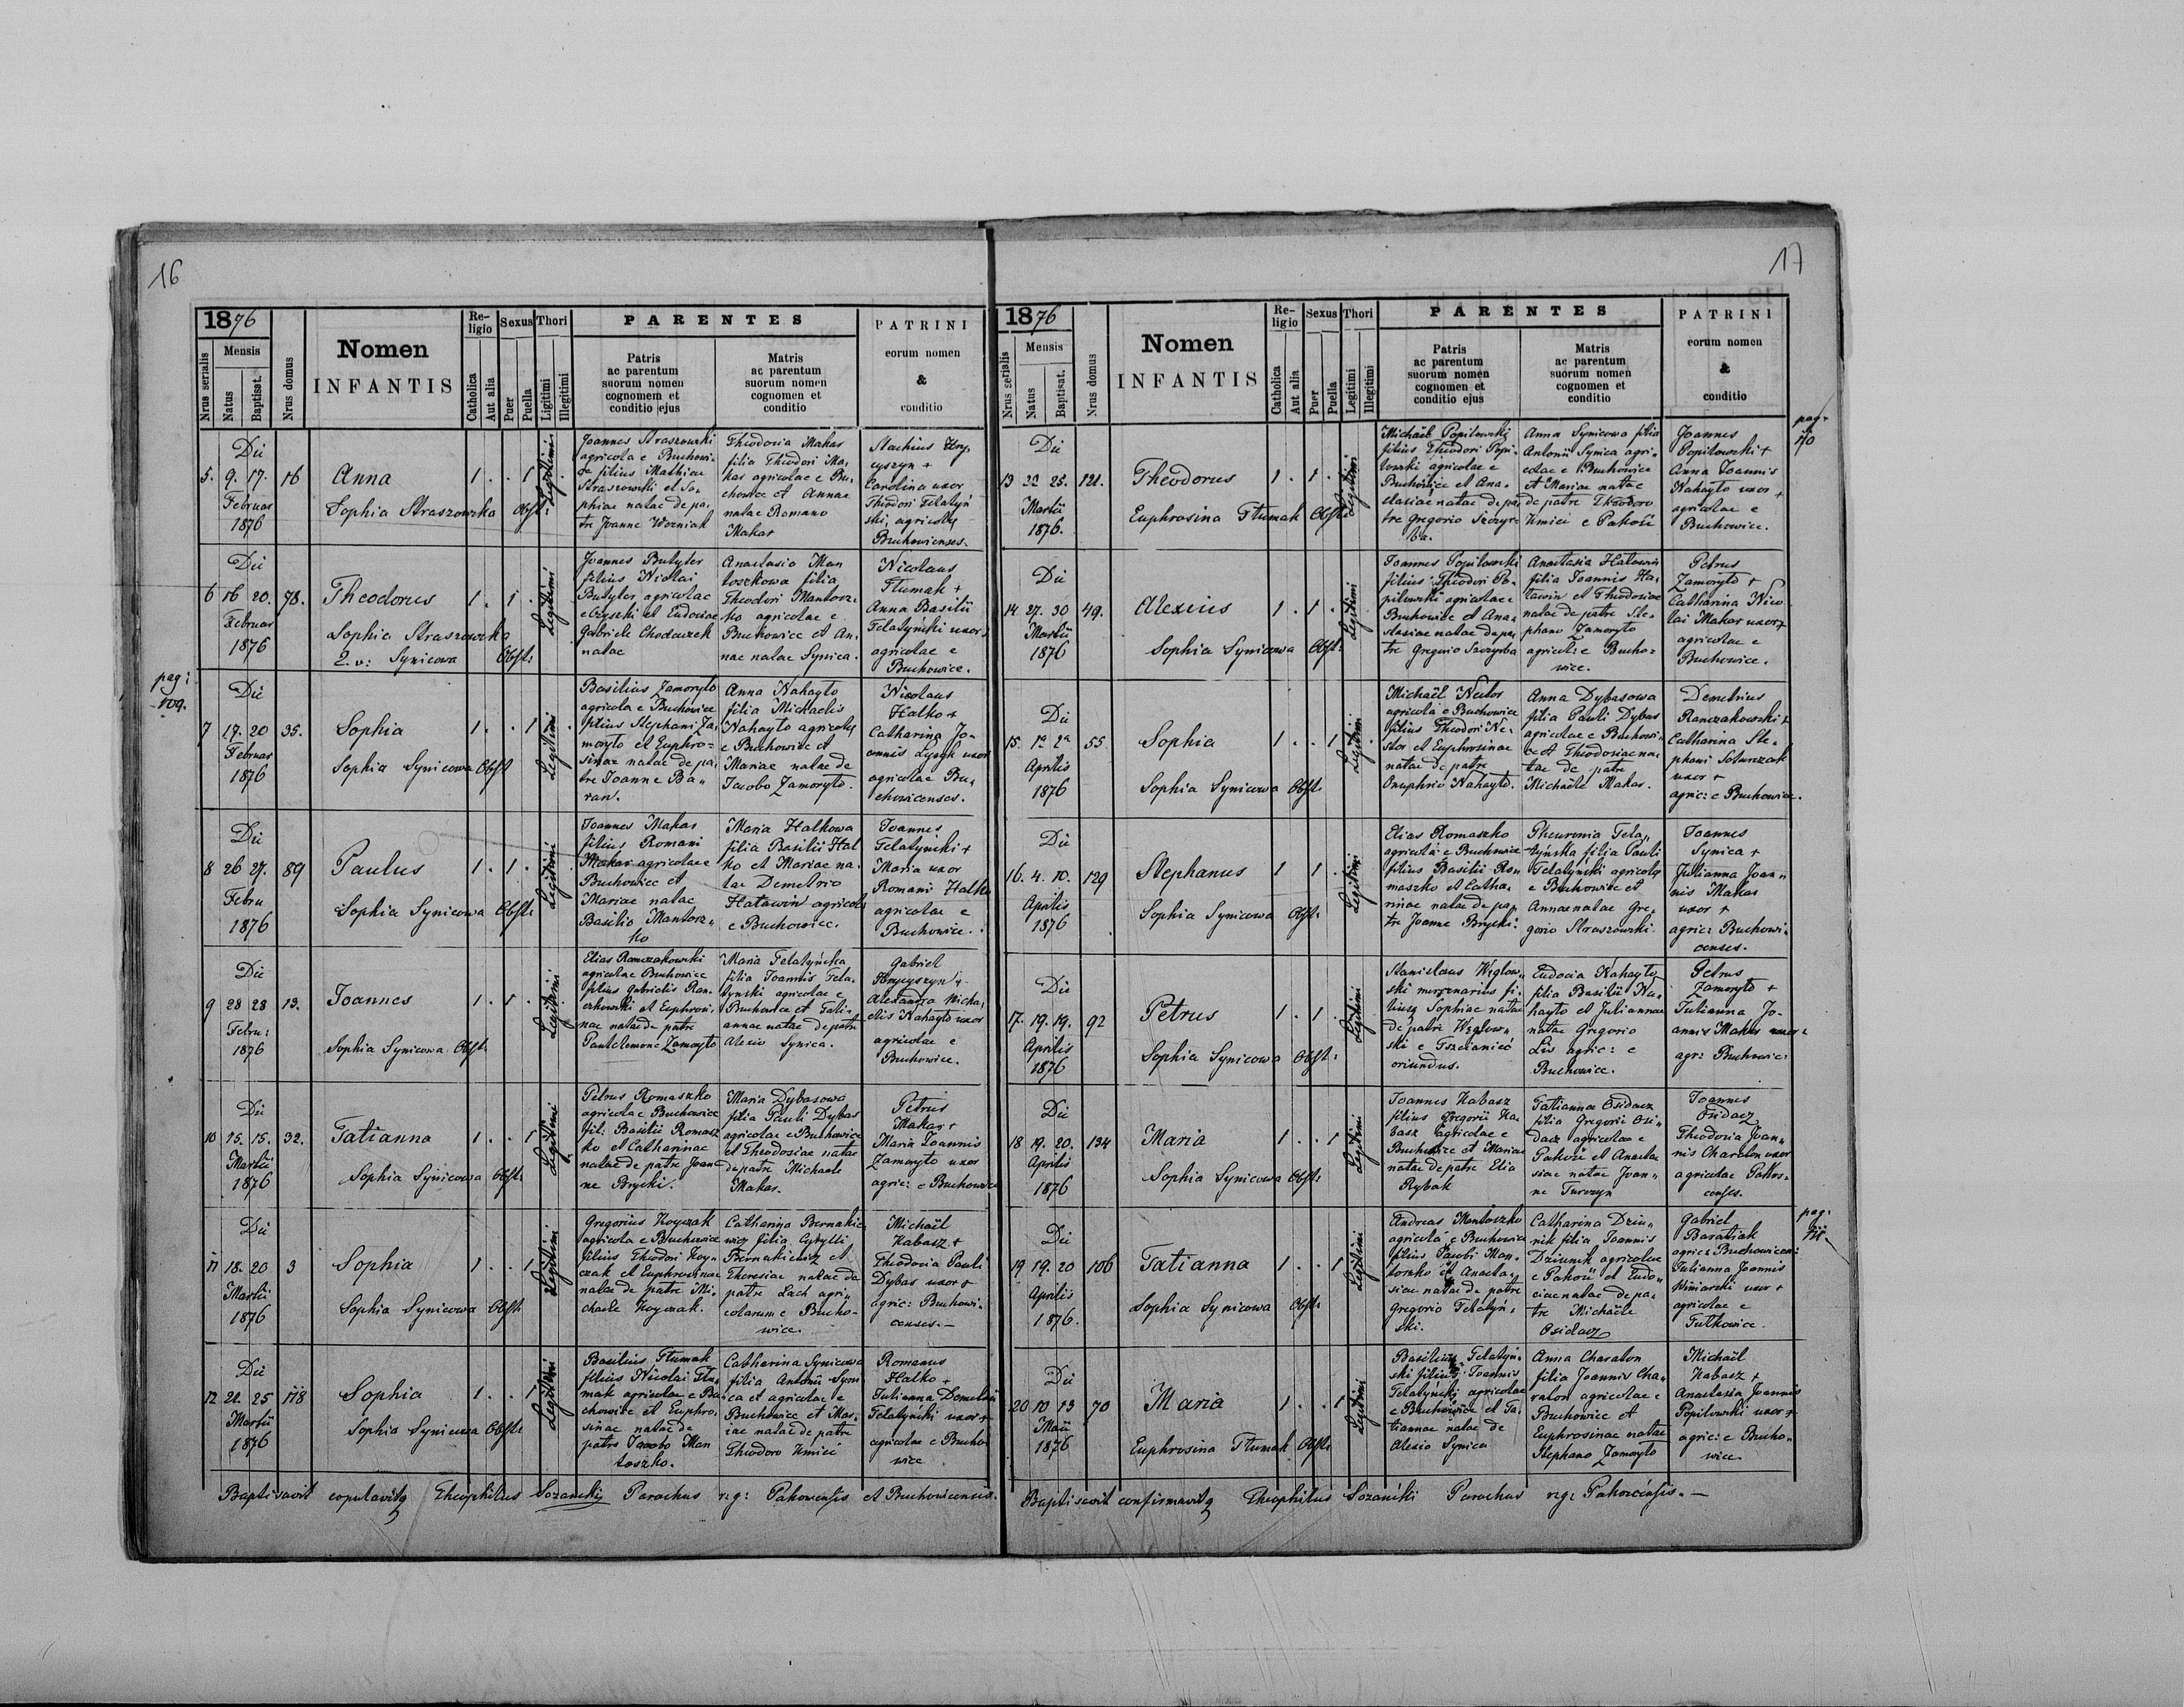 16
1876
Nrus serialis
Mensis
Natus
Baptisat.
Nrus domus
Nomen
INFANTIS
Re-
ligio
Catholica
Aut alia
Sexus
Puer
Puella
Thori
Ligitimi
Illegitimi
PARENTES
Patris
ac parentum
suorum nomen
cognomem et
conditio ejus
Matris
ac parentum
suorum nomen
cognomen et
conditio
PATRINI
eorum nomen
&
conditio
5.
Die
9. 17.
Februar
1876
16
Anna
Sophia Straszowska Obst:
1. . . 1
Legitimi
Joannes Straszowski
agricola e Buchowi-
ce filius Mathiae
Straszowski et So-
phiae natae de pa-
tre Joanne Wozniak
Theodoria Makar
filia Theodori Ma-
kar agricolae e Bu-
chowice et Annae
natae Romano
Makar
Carolina uxor
Theodori Telatyń
ski, agricolae
Buchowicenses.
6
Die
16 20.
Februar
1876
78.
Theodorus
Sophia Straszowska
2. v: Synicowa Obst:
1. 1
Legitimi
Joannes Butyter
filius Nicolai
Butyter agricolae
et Eudociae
Gabriele
natae
Anastasia Man
toszkowa filia
Theodori Mantosz-
ko agricolae e
Buchowice et An-
nae natae Synica.
Nicolaus
Tłumak +
Anna Basilii
Telatyński uxor
agricolae e
Buchowice.
pag:
109.
7
Die
17. 20
Februar
1876
35.
Sophia
Sophia Synicowa Obst
1. . . 1
Legitimi
Basilius Zamoryto
agricola e Buchowice
filius Stephani Za-
moryto et Euphro-
sinae natae de pa-
tre Joanne Ba-
ran.
Anna Nahayto
filia Michaelis
Nahayto agricolae
e Buchowice et
Mariae natae de
Jacobo Zamoryto.
Nicolaus
Halko +
Catharina Jo-
annis uxor
agricolae Bu-
chowicenses.
8
Die
26 27.
Febru
1876
89
Paulus
Sophia Synicowa Obst:
1. 1.
Legitimi
Joannes Makar
filius Romani
Makar agricolae e
Buchowice et
Mariae natae
Basilio Mantosz-
ko
Maria Halkowa
filia Basilii Hal
ko et Mariae na-
tae Demetrio
Hatawin agricola
e Buchowice.
Joannes
Telatyński +
Maria uxor
Romani Halko
agricolae e
Buchowice.
9
Die
28 28
Febru:
1876
13.
Joannes
Sophia Synicowa Obst:
1. 1.
Legitimi
Elias Ranczakowski
agricolae Buchowice
filius Gabrielis Ran-
czkowski et Euphrosi-
nae natae de patre
Pantelemone Zamoryto
Maria Telatyńska
filia Joannis Tela-
tynski agricolae e
Buchowice et Tati-
annae natae de patre
Alexio Synica.
Gabriel
Hrycyszyn +
Alexandra Micha-
elis Nahayto uxor
agricolae e
Buchowice.
10
Die
15. 15.
Martii
1876
32.
Tatianna
Sophia Synicowa Obst:
1. . . 1
Legitimi
Petrus Romaszko
agricola e Buchowice
fil: Basilii Romasz
ko et Catharinae
natae de patre Joan
ne Brycki.
Maria Dybasowa
filia Pauli Dybas
agricolae e Buchowice
et Theodosiae natae
de patre Michaele
Makar.
Petrus
Makar +
Maria Joannis
Zamoryto uxor
agric: e Buchowice
11
Die
18. 20
Martii
1876
3
Sophia
Sophia Synicowa Obst:
1. . . 1
Legitimi
Gregorius Koyczak
agricola e Buchowice
filius Theodori Koy-
czak et Euphrosinae
natae de patre Mi-
chaele Koyczak.
Catharina Bernakie-
wicz filia Cyrylli
Bernakiewicz et
Theresiae natae de
patre Lach agri-
colarum e Bucho-
wice.
Michaël
Kabasz +
Theodoria Pauli
Dybas uxor +
agric: Buchowi-
censes.—
12
Die
21. 25
Martii
1876
118
Sophia
Sophia Synicowa Obst:
1. . . 1
Legitimi
Basilius Tłumak
filius Nicolai Tłu-
mak agricolae e Bu-
chowice et Euphro-
sinae natae de
patre Jacobo Man
toszko.
Catharina Synicowa
filia Antonii Syni
ca et agricolae e
Buchowice et Ma-
riae natae de patre
Theodoro Kmieć
Romanus
Halko +
Julianna Demetrii
Telatyński uxor +
agricolae e Bucho
wice
Baptisavit copulavitq Theophilus Sozanskij Parochus r.g: Pakoscensis et Buchovicensis.
17
1876
Nrus serialis
Mensis
Natus
Baptisat.
Nrus domus
Nomen
INFANTIS
Re-
ligio
Catholica
Aut alia
Sexus
Puer
Puella
Thori
Legitimi
Illegitimi
PARENTES
Patris
ac parentum
suorum nomen
cognomen et
conditio ejus
Matris
ac parentum
suorum nomen
cognomen et
conditio
PATRINI
eorum nomen
&
conditio
pag:
110
13
Die
25.
Martii
1876.
121.
Theodorus
Euphrosina Tłumak Obst:
1. 1.
Legitimi
Michaël Popilowski
filius Theodori Popi-
lowski agricolae e
Buchowice et Ana-
stasiae natae de pa-
tre Gregorio Szczyr-
ba.
Anna Synicowa filia
Antonii Synica agri-
colae e Buchowice
et Mariae natae
de patre Theodoro
Kmieć e Pakość
Joannes
Popilowski +
Anna Joannis
Nahayto uxor +
agricolae e
Buchowice.
14
Die
27. 30
Martii
1876
49.
Alexius
Sophia Synicowa Obst:
1. 1.
Legitimi
Joannes Popilowski
filius Theodori Po-
pilowski agricolae e
Buchowice et Ana-
stasiae natae de pa-
tre Gregorio Szczyrba
Anastasia Hatowin
filia Joannis Ha-
tawin et Theodoriae
natae de patre Ste-
phano Zamoryto
agricolae e Bucho-
wice.
Petrus
Zamoryto +
Catharina Nico
lai Makar uxor +
agricolae e
Buchowice.
15.
Die
1a 2a
Aprilis
1876
55
Sophia
Sophia Synicowa Obst:
1. . . 1
Legitimi
Michaël Nestor
agricola e Buchowice
filius Theodori Ne-
stor et Euphrosinae
natae de patre
Onuphrio Nahayto.
Anna Dybasowa
filia Pauli Dybas
agricolae e Buchowi-
ce et Theodosiae na-
tae de patre
Michaële Makar.
Demetrius
Ranczakowski +
Catharina Ste-
phani
uxor +
agric: e Buchowice.
16.
Die
4. 10.
Aprilis
1876
129
Stephanus
Sophia Synicowa Obst:
1 1.
Legitimi
Elias Romaszko
agricola e Buchowice
filius Basilii Ro-
maszko et Catha-
rinae natae de pa-
tre Joanne Brycki.
Pheuronia Tela-
tyńska filia Pauli
Telatyński agricolae
e Buchowice et
Annae natae Gre-
gorio Straszowski.
Joannes
Synica +
Julianna Joan-
nis Makar
uxor +
agric: Buchowi-
censes.
17.
Die
19. 19.
Aprilis
1876
92
Petrus
Sophia Synicowa Obst:
1. 1.
Legitimi
Stanislaus Węglow-
ski mercenarius fi-
lius Sophiae natae
de patre Węglow-
ski e
oriundus.
Eudocia Nahayto
filia Basilii Na-
hayto et Juliannae
natae Gregorio
Lis agric: e
Buchowice.
Petrus
Zamoryto +
Julianna Jo-
annis Makar uxor
agr: Buchowic:
18
Die
19. 20.
Aprilis
1876
134
Maria
Sophia Synicowa Obst:
1. . . 1
Legitimi
Joannes Kabasz
filius Gregorii Ka-
basz agricolae e
Buchowice et Mariae
natae de patre Elia
Rybak
Tatianna Osidacz
filia Gregorii Osi-
dacz agricolae e
Pakość et Anasta
siae natae Joan-
ne Turczyn
Joannes
Osidacz
Theodoria Joan-
nis Charaton uxor
agricolae Pakos-
censes.
pag:
111.
19
Die
19. 20
Aprilis
1876.
106
Tatianna
Sophia Synicowa Obst:
1. . . 1
Legitimi
Andreas Mantoszko
agricola e Buchowice
filius Jacobi Man-
toszko et Anasta-
siae natae de patre
Gregorio Telatyń-
ski.
Catharina Dziu-
nik filia Joannis
Dziunik agricolae
e Pakość et Eudo-
ciae natae de pa-
tre Michaële
Osidacz
Gabriel
Baratiak
agric: Buchowicen:
Julianna Joannis
Winiarski uxor +
agricolae e
Tutkowice.
20
Die
10 13
Maii
1876
70
Maria
Euphrosina Tłumak Obst:
1. . . 1
Legitimi
Basilius Telatyń-
ski filius Joannis
Telatyński agricolae
e Buchowice et Ta-
tiannae natae de
Alexio Synica
Anna Charaton
filia Joannis Cha-
raton agricolae e
Buchowice et
Euphrosinae natae
Stephano Zamoryto
Michaël
Kabasz +
Anastasia Joannis
Popilowski uxor +
agric: e Bucho-
wice.
Baptisavit confirmavitq Theophilus Sozański Parochus r.g: Pakoscensis.—